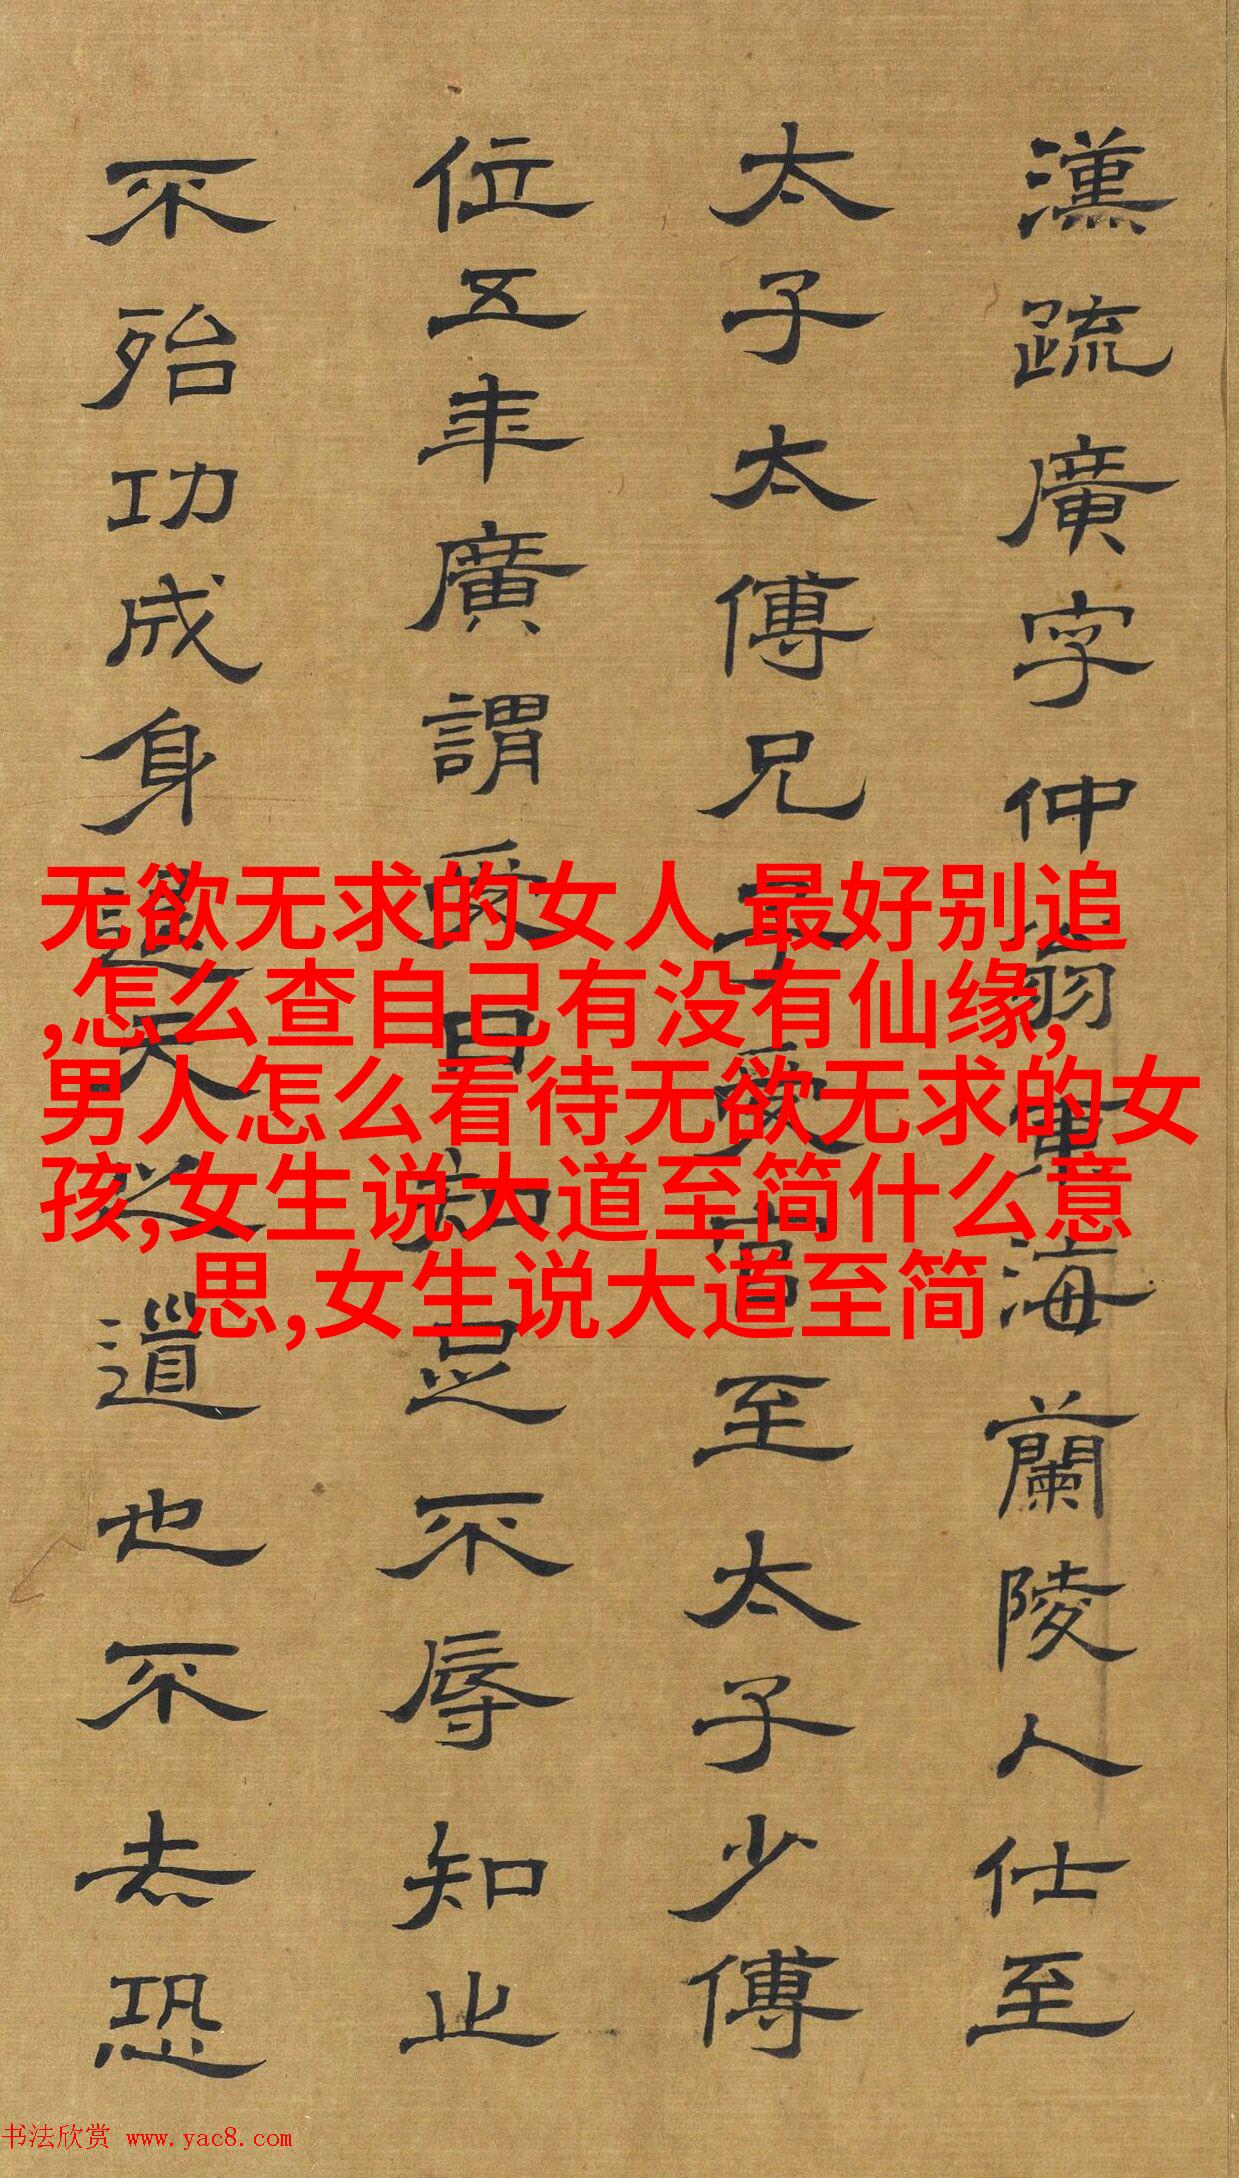 漢疏廣字仲翁東海蘭陵人仕至
太子太傅兄子受官至太子少傅
位五年廣謂受曰知足不辱知止
不殆功成身退天之道也不去恐
无欲无求的女人 最好别追
,怎么查自己有没有仙缘,
男人怎么看待无欲无求的女
孩,女生说大道至简什么意
思,女生说大道至简
书法欣赏 www.yac8.com